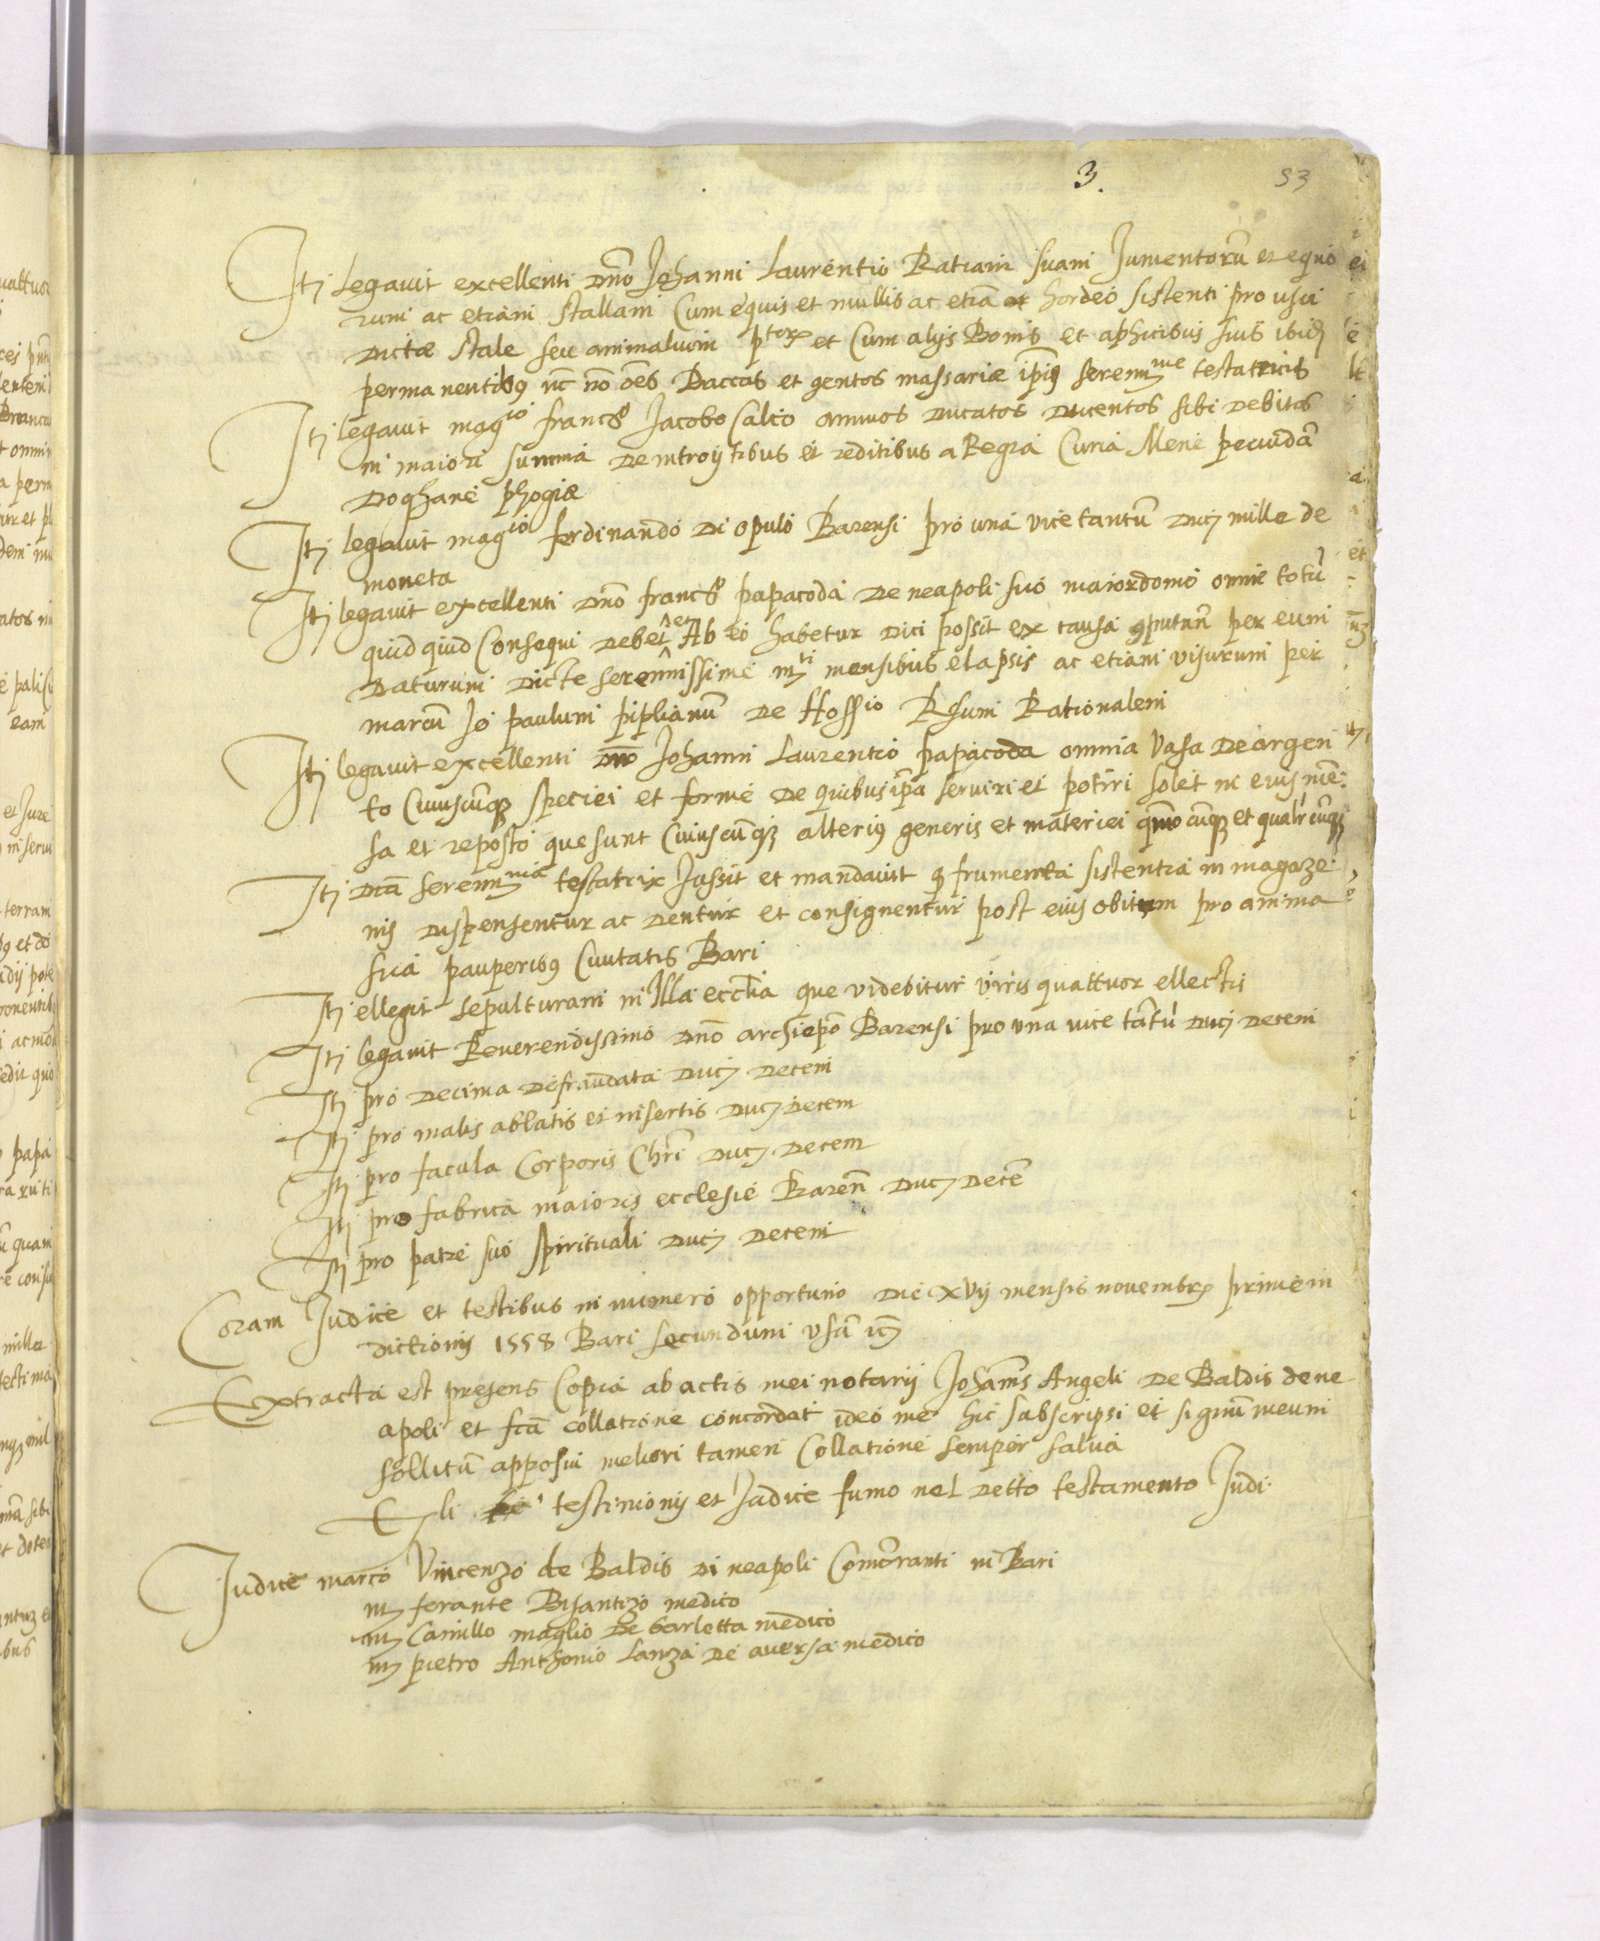 3. 53
Itẽ legauit excellenti dño Johanni Laurentio Ratiam suam Jumentorũ et equo
rum ac etiam stallam Cum equis et mullis ac etiã et hordeo sistenti pro usu
dictæ stale seu animalium p^torx et Cum alijs Bonis et aphicibus suis ibidẽ
permanentibus nc no oẽs Baccas et gentos massariæ ipius serenme testatricis
Itẽ legauit mag^co franc^o Jacobo Calco annuos ducatos ducentos sibi debitos
in maiori summa de introijtibus et reditibus a Regia Curia Mene pecudã
Doghane phogiæ
Itẽ legauit mag^co ferdinando di opulo Barensi pro una vice tantũ ducẽ mille de
moneta
Itẽ legauit excellenti dño franc^o papacoda de neapoli suo maiordomo omne totũ
quid quid Consequi debet et Ab eo habetur dici possit ex causa cputañ per eum
Daturum dicte serennissime m^ti mensibus elapsis ac etiam visurum per
marcũ Jo paulum piplianũ de Hossio Rsum Rationalem
Itẽ legauit excellenti dño Johanni Laurentio papacoda omnia Vasa de argen
to Cuiuscũque speciei et forme de quibus ipã serviri et potiri solet in eius mẽ:
sa et reposto que sunt Cuiuscũque alterius generis et materiei qmocũque et qualrcũque
Itẽ dicã serenma testatrix Jussit et mandauit q frumenta sistentia in magaze
nis dispensentur ac dentur et consignentur post eius obitum pro anima
sua pauperibus Ciuitatis Bari
Itẽ ellegit sepulturam in Illa ecclia que videbitur viris quattuor ellectis
Itẽ legauit Reuerendissimo dño archiepo Barensi pro una vice tãtũ ducẽ decem
Itẽ pro decima defraudata ducẽ decem
Itẽ pro malis ablatis et insertis ducẽ decem
Itẽ pro facula Corporis Chri ducẽ decem
Itẽ pro fabrica maioris ecclesie Bareñ ducẽ decẽ
Itẽ pro patre suo spirituali ducẽ decem
Coram Judice et testibus in numero opportuno die xvij mensis novembrẽ prime in
dictionis 1558 Bari secundum usũ
Extracta est presens Copia ab actis mei notarij Johãnis Angeli de Baldis de ne
apoli et fcã collatione concordat ideo me hic subscripsi et signũ meum
sollitũ apposui meliori tamen Collatione semper salua
Gli testimonij et Judice fumo nel detto testamento Judi
Judice marco Vincenzo de Baldis di neapoli Comoranti in Bari
m ferante Bisantizo medico
m Camillo maglio De barletta medico
m pietro Anthonio Lanza de auersa medico